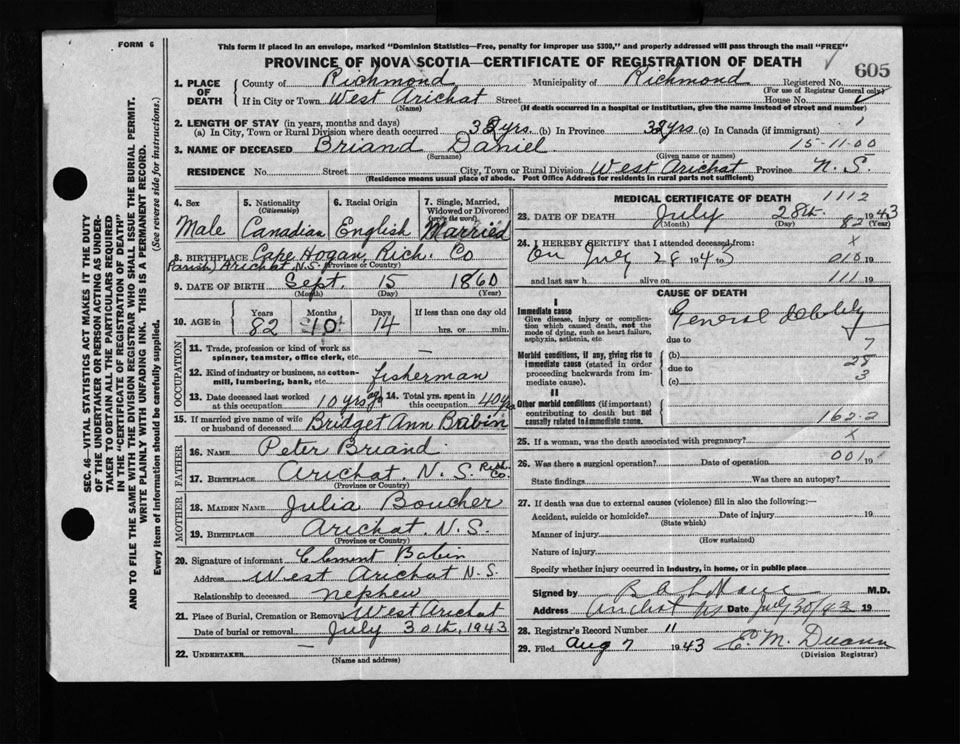 FORM 6
This form if placed in an envelope, marked "Dominion Statistics—Free, penalty for improper use $300," and properly addressed will pass through the mail "FREE"
PROVINCE OF NOVA SCOTIA—CERTIFICATE OF REGISTRATION OF DEATH
605
1. PLACE OF DEATH
County of Richmond Municipality of Richmond Registered No.
(For use of Registrar General only)
If in City or Town West Arichat Street House No.
(Name) (If death occurred in a hospital or institution, give the name instead of street and number)
2. LENGTH OF STAY (in years, months and days)
(a) In City, Town or Rural Division where death occurred yrs. (b) In Province yrs (c) In Canada (if immigrant)
3. NAME OF DECEASED Briand Daniel 15-11-00
(Surname) (Given name or names)
RESIDENCE No. Street City, Town or Rural Division West Arichat Province N.S.
(Residence means usual place of abode. Post Office Address for residents in rural parts not sufficient)
4. Sex
Male
5. Nationality
(Citizenship)
Canadian
6. Racial Origin
English
7. Single, Married, Widowed or Divorced
(write the word)
Married
8. BIRTHPLACE Cape Hogan, Rich. Co
(Parish) Arichat N.S. (Province or Country)
9. DATE OF BIRTH Sept. 15 1860
(Month) (Day) (Year)
10. AGE in
Years Months Days If less than one day old
82 10 14 hrs. or min.
OCCUPATION
11. Trade, profession or kind of work as spinner, teamster, office clerk, etc. —
12. Kind of industry or business, as cotton-mill, lumbering, bank, etc. fisherman
13. Date deceased last worked at this occupation 10 yrs ago
14. Total yrs. spent in this occupation 40 yrs
15. If married give name of wife or husband of deceased Bridget Ann Babin
FATHER
16. NAME Peter Briand
17. BIRTHPLACE Arichat N.S. Rich. Co.
(Province or Country)
MOTHER
18. MAIDEN NAME Julia Boucher
19. BIRTHPLACE Arichat. N.S.
(Province or Country)
20. Signature of informant Clement Babin
Address West Arichat N.S.
Relationship to deceased nephew
21. Place of Burial, Cremation or Removal West Arichat
Date of burial or removal July 30th, 1943
22. UNDERTAKER —
(Name and address)
MEDICAL CERTIFICATE OF DEATH
1112
23. DATE OF DEATH July 28th 1943
(Month) (Day) 82 (Year)
24. I HEREBY CERTIFY that I attended deceased from: X
On July 28 1943 010 19
and last saw h alive on 111 19
CAUSE OF DEATH
I
Immediate cause
Give disease, injury or complication which caused death, not the mode of dying, such as heart failure, asphyxia, asthenia, etc.
General debility
due to 7
Morbid conditions, if any, giving rise to immediate cause (stated in order proceeding backwards from immediate cause).
(b) 28
due to 3
(c)
II
Other morbid conditions (if important) contributing to death but not causally related to immediate cause.
162-2
25. If a woman, was the death associated with pregnancy? X
26. Was there a surgical operation? Date of operation 001 19
State findings Was there an autopsy?
27. If death was due to external causes (violence) fill in also the following:—
Accident, suicide or homicide? Date of injury 19
(State which)
Manner of injury
(How sustained)
Nature of injury
Specify whether injury occurred in industry, in home, or in public place
Signed by M.D.
Address Arichat NS Date July 30/43 19
28. Registrar's Record Number 11
29. Filed Aug 7 1943
(Division Registrar)
SEC. 46—VITAL STATISTICS ACT MAKES IT THE DUTY
OF THE UNDERTAKER OR PERSON ACTING AS UNDER-
TAKER TO OBTAIN ALL THE PARTICULARS REQUIRED
IN THE "CERTIFICATE OF REGISTRATION OF DEATH"
AND TO FILE THE SAME WITH THE DIVISION REGISTRAR WHO SHALL ISSUE THE BURIAL PERMIT.
WRITE PLAINLY WITH UNFADING INK. THIS IS A PERMANENT RECORD.
Every item of information should be carefully supplied. (See reverse side for instructions.)